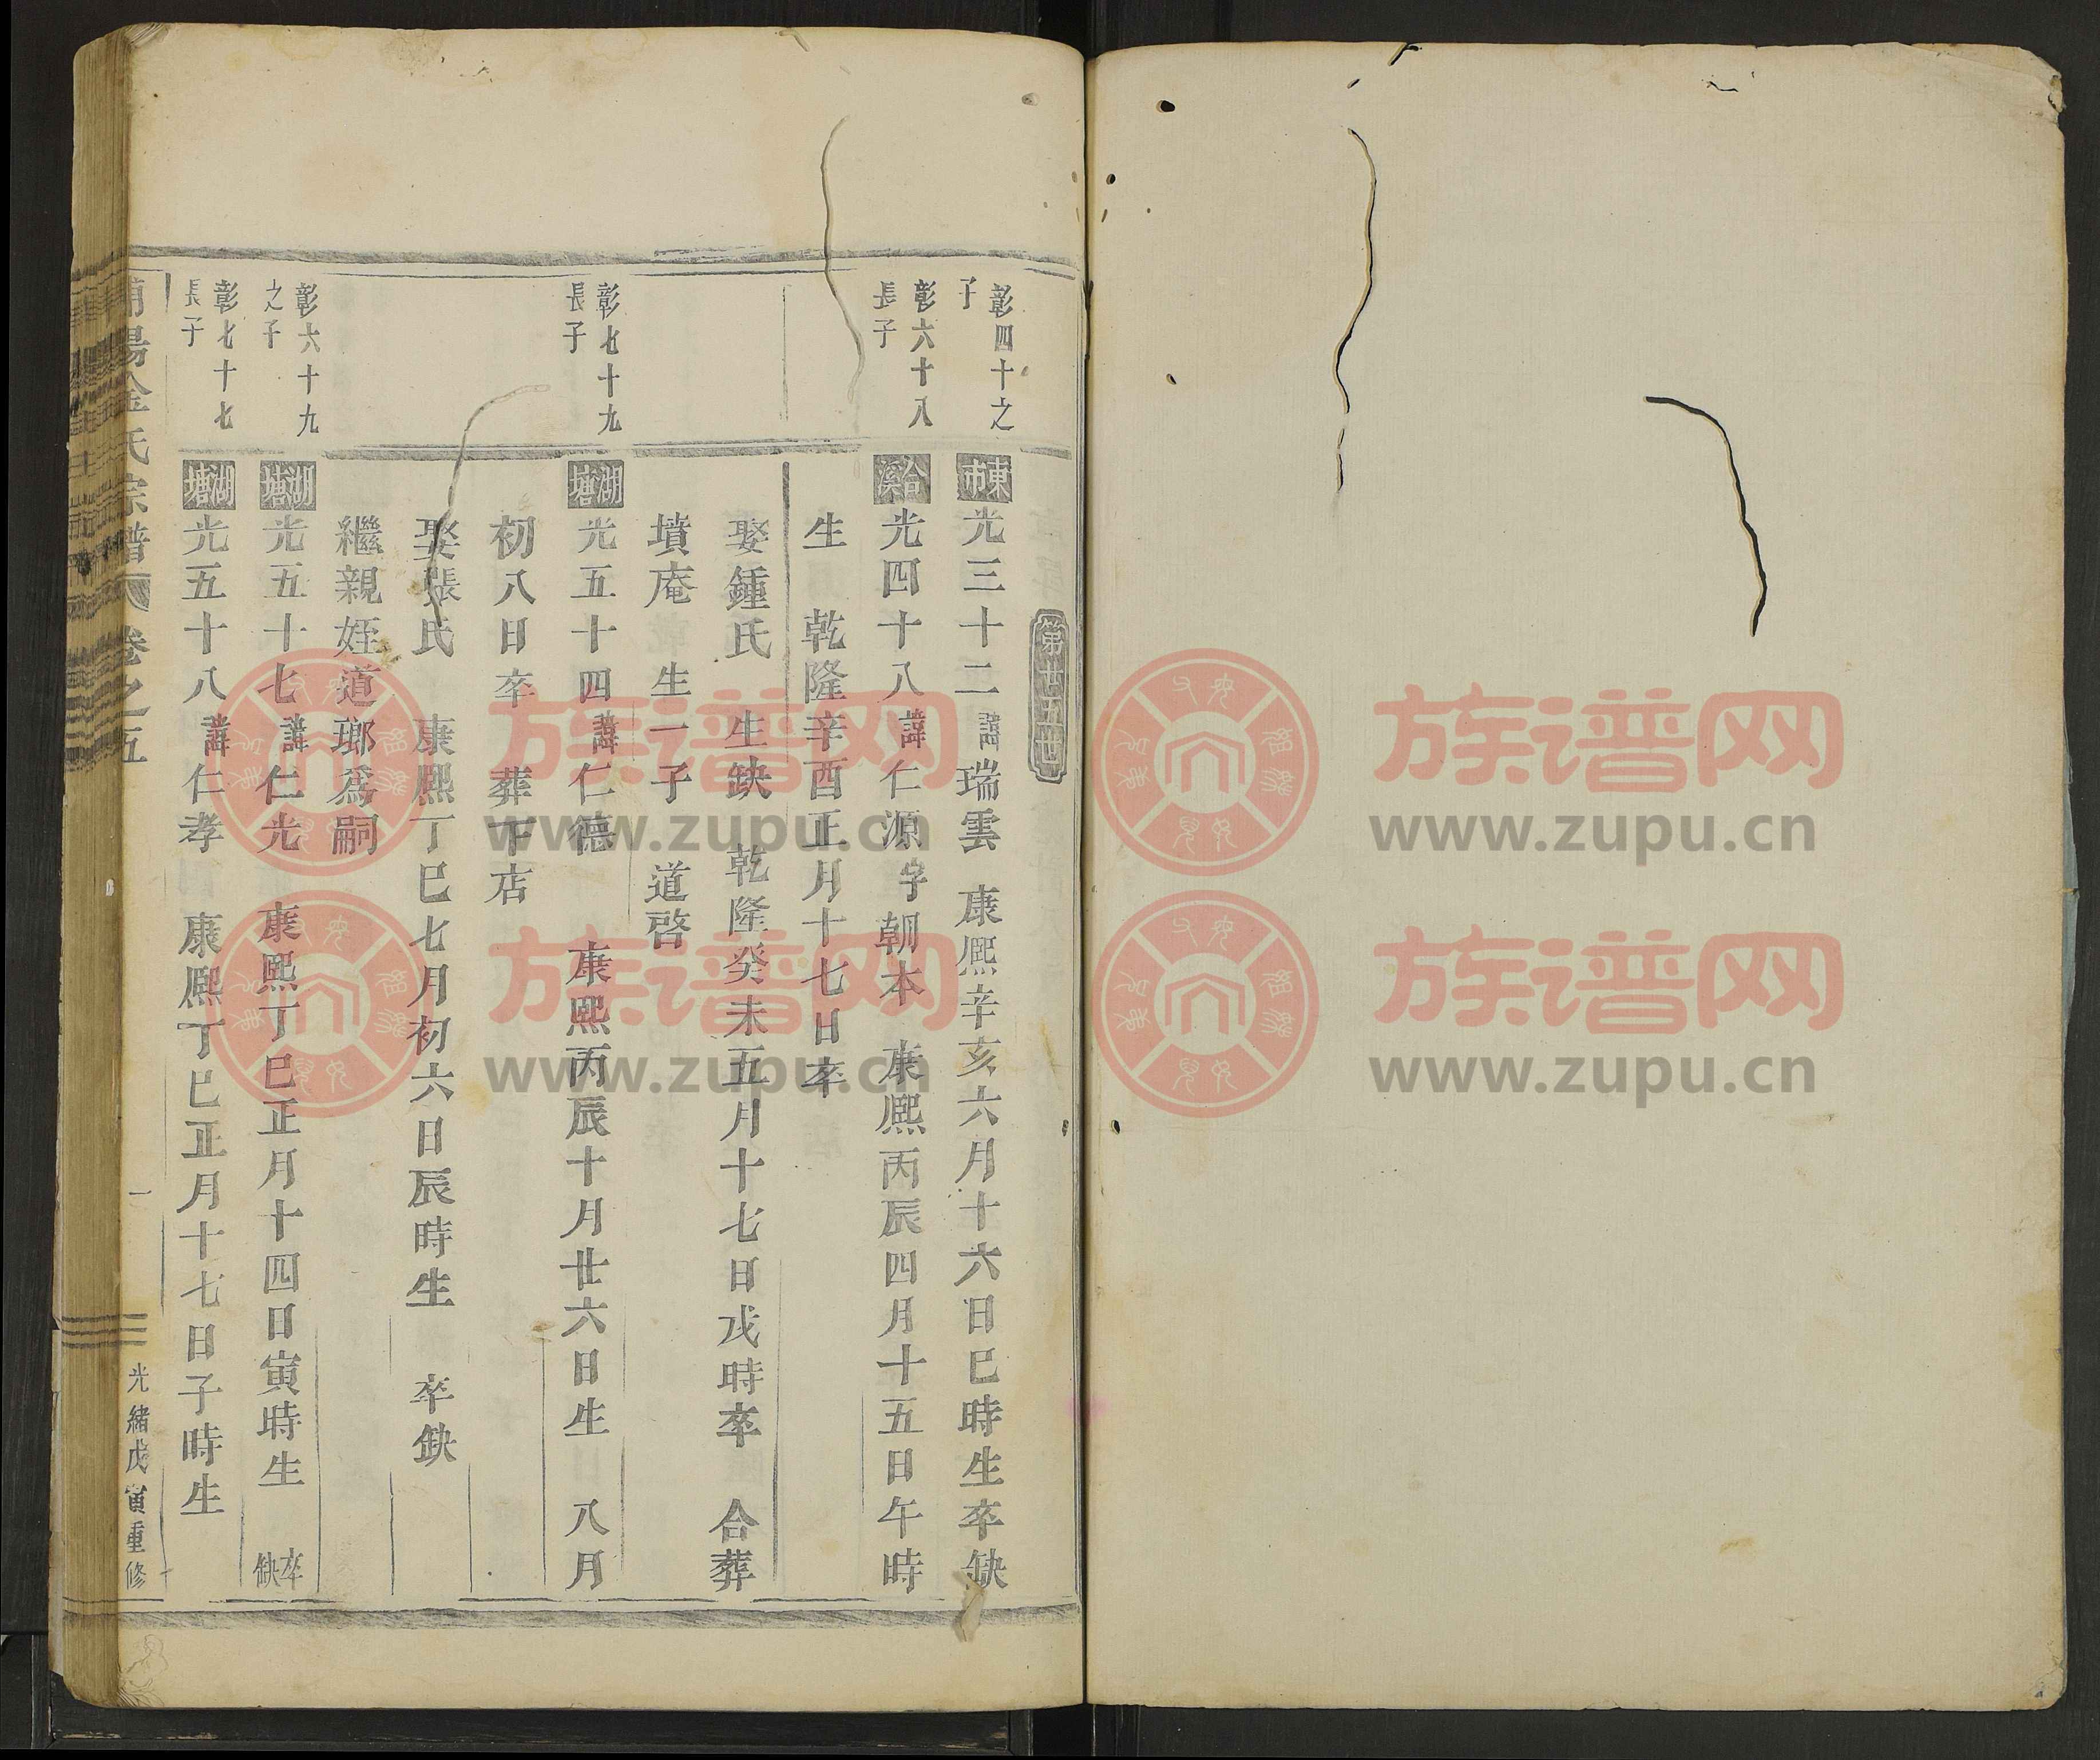 第廿五世
彰四十之
子
東市
光三十二諱瑞雲 康熙辛亥六月十六日巳時生卒缺
彰六十八
長子
合溪
光四十八諱仁源字朝本 康熙丙辰四月十五日午時
生 乾隆辛酉正月十七日卒
娶鍾氏 生缺 乾隆癸未五月十七日戌時卒 合葬
墳庵 生一子 道啓
彰七十九
長子
湖塘
光五十四諱仁德 康熙丙辰十月廿六日生 八月
初八日卒 葬下店
娶張氏 康熙丁巳七月初六日辰時生 卒缺
繼親姪道瑯爲嗣
彰六十九
之子
湖塘
光五十七諱仁光 康熙丁巳正月十四日寅時生 卒缺
彰七十七
長子
湖塘
光五十八諱仁孝 康熙丁巳正月十七日子時生
陽金氏宗譜 卷之五 一 光緒戊寅重修
族谱网
www.zupu.cn
族谱网
www.zupu.cn
族谱网
www.zupu.cn
族谱网
www.zupu.cn